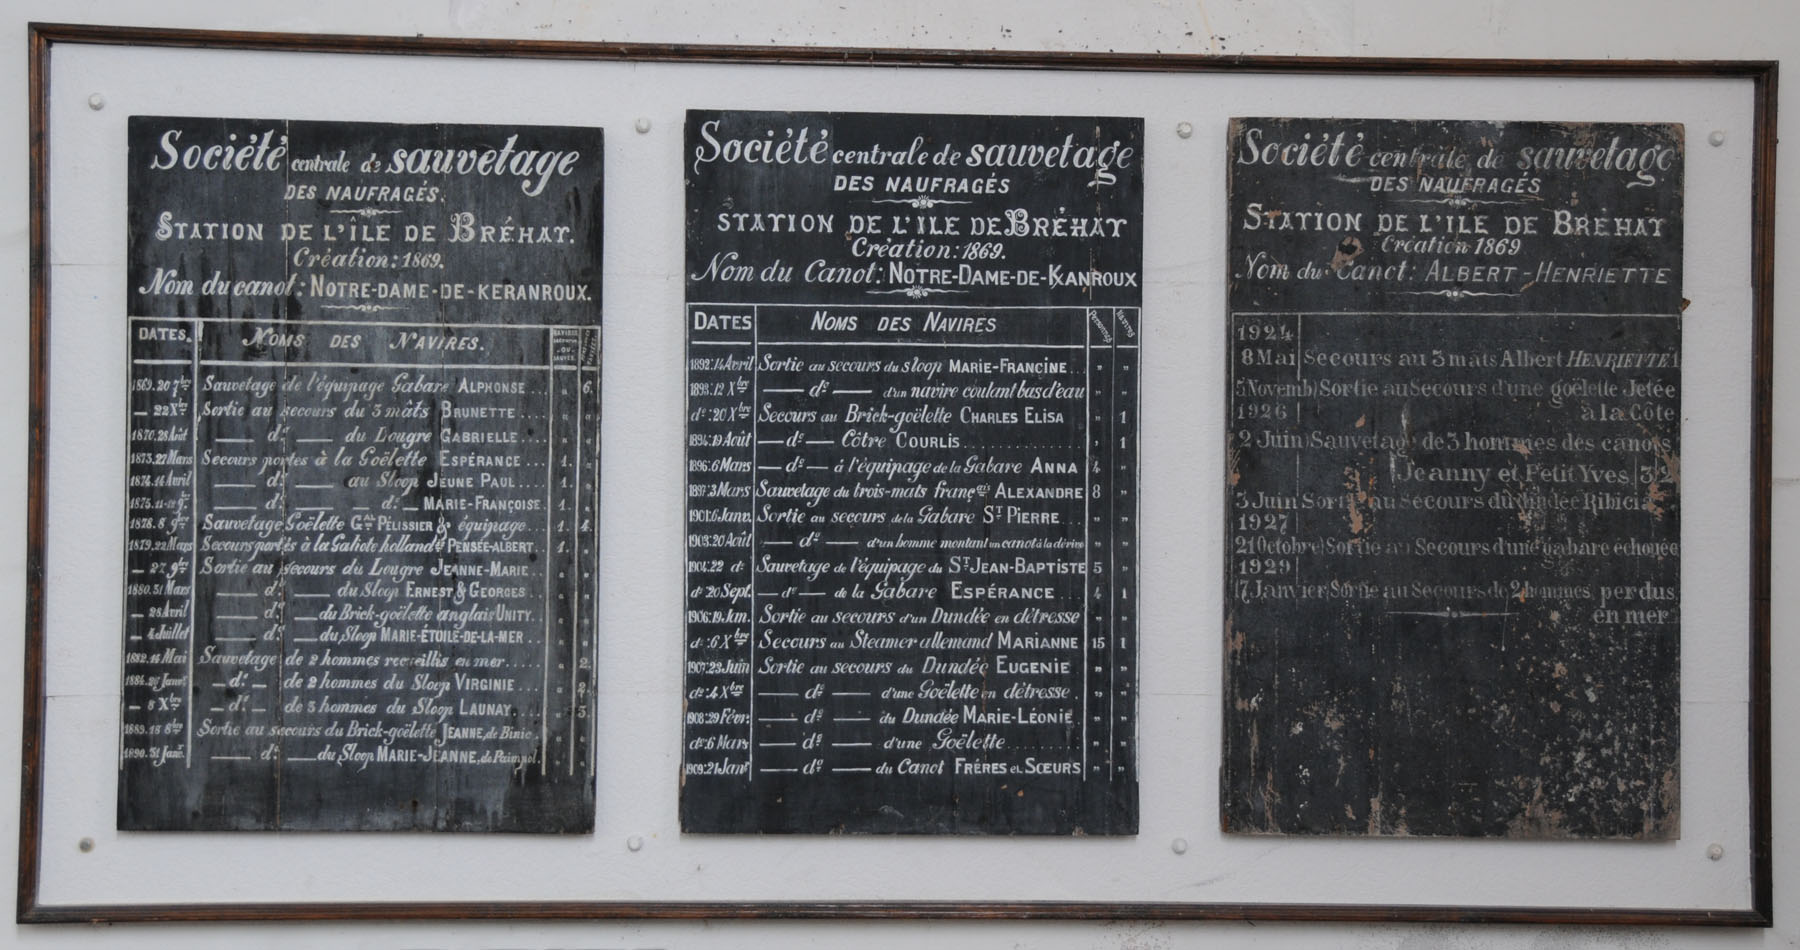 Société centrale de sauvetage
DES NAUFRAGÉS.
STATION DE L'ÎLE DE BRÉHAT.
Création: 1869.
Nom du canot: NOTRE-DAME-DE-KERANROUX.
DATES. NOMS DES NAVIRES.
1869. 20 7bre Sauvetage de l'équipage Gabare ALPHONSE ... " 6.
_ 22 Xbre Sortie au secours du 3 mâts BRUNETTE .... " "
1870. 28 Août — do — du Lougre GABRIELLE .... " "
1873. 27 Mars Secours portés à la Goëlette ESPÉRANCE ... 1. "
1874. 14 Avril — do — au Sloop JEUNE PAUL .... 1. "
1875. — do — do _ MARIE-FRANÇOISE 1. "
1878. 8 9bre Sauvetage Goëlette GAL PÉLISSIER & équipage ... 1. 4.
1879. 22 Mars Secours portés à la Galiote hollandse PENSÉE-ALBERT. 1. "
_ 27 9bre Sortie au secours du Lougre JEANNE-MARIE ... " "
1880. 31 Mars — do — du Sloop ERNEST & GEORGES ... " "
_ 28 Avril — do — du Brick-goëlette anglais UNITY. " "
_ 4 Juillet — do — du Sloop MARIE-ÉTOILE-DE-LA-MER .. " "
1882. 16 Mai Sauvetage de 2 hommes recueillis en mer ..... " 2.
1884. 29 Janvr _ do _ de 2 hommes du Sloop VIRGINIE ... " 2.
_ 8 Xbre _ do _ de 3 hommes du Sloop LAUNAY .... " 3.
1889. 18 8bre Sortie au secours du Brick-goëlette JEANNE, de Binic. " "
1890. 31 Janr. — do — du Sloop MARIE-JEANNE, de Paimpol. " "
Société centrale de sauvetage
DES NAUFRAGÉS
STATION DE L'ILE DE BRÉHAT
Création: 1869.
Nom du Canot: NOTRE-DAME-DE-KANROUX
DATES NOMS DES NAVIRES Navires
1892: 14 Avril Sortie au secours du sloop MARIE-FRANÇINE ... " "
1893: 12 Xbre — do — d'un navire coulant bas d'eau " "
do: 20 Xbre Secours au Brick-goëlette CHARLES ELISA " 1
1894: 19 Août — do — Côtre COURLIS ............ " 1
1896: 6 Mars — do — à l'équipage de la Gabare ANNA 4 "
1897: 3 Mars Sauvetage du trois-mats français ALEXANDRE 8 "
1901: 6 Janv. Sortie au secours de la Gabare ST PIERRE ... " "
1903: 20 Août — do — d'un homme montant un canot à la dérive " "
1904: 22 do Sauvetage de l'équipage du ST JEAN-BAPTISTE 5 "
do 20 Sept. — do — de la Gabare ESPÉRANCE ... 4 1
1906: 19 Jan. Sortie au secours d'un Dundée en détresse " "
do: 6 Xbre Secours au Steamer allemand MARIANNE 15 1
1907: 23 Juin Sortie au secours du Dundée EUGENIE " "
do: 4 Xbre — do — d'une Goëlette en détresse. " "
1908: 29 Févr. — do — du Dundée MARIE-LÉONIE. " "
do: 6 Mars — do — d'une Goëlette ............ " "
1909: 21 Janr — do — du Canot FRÉRES et SŒURS " "
Société centrale de sauvetage
DES NAUFRAGÉS
STATION DE L'ILE DE BRÉHAT
Création 1869
Nom du Canot: ALBERT-HENRIETTE
1924
8 Mai Secours au 3 mats Albert HENRIETTE 1
5 Novemb Sortie au Secours d'une goëlette Jetée
1926 à la Côte
2 Juin Sauvetage de 3 hommes des canots
Jeanny et Petit Yves 3 2
3 Juin Sortie au Secours du dundée Ribicia
1927
21 Octobre Sortie au Secours d'une gabare echouée
1929
17 Janvier Sortie au Secours de 2 hommes perdus
en mer